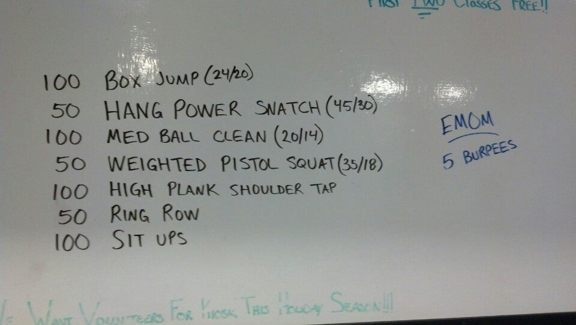 FIRST TWO CLASSES FREE!!
100 BOX JUMP (24/20)
50 HANG POWER SNATCH (45/30)
100 MED BALL CLEAN (20/14)
50 WEIGHTED PISTOL SQUAT (35/18)
100 HIGH PLANK SHOULDER TAP
50 RING ROW
100 SIT UPS
EMOM
5 BURPEES
WANT VOLUNTEERS FOR THIS HOLIDAY SEASON!!!